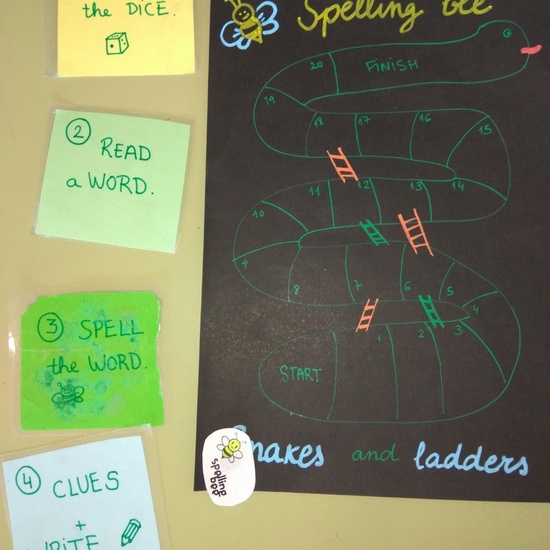 the DICE.
② READ
a WORD.
③ SPELL
the WORD.
④ CLUES
+
Spelling bee
20 FINISH
19
18 17 16 15
11 12 13 14
10
9
8 7 6 5 4
START 1 2 3
spelling
bee
Snakes and ladders